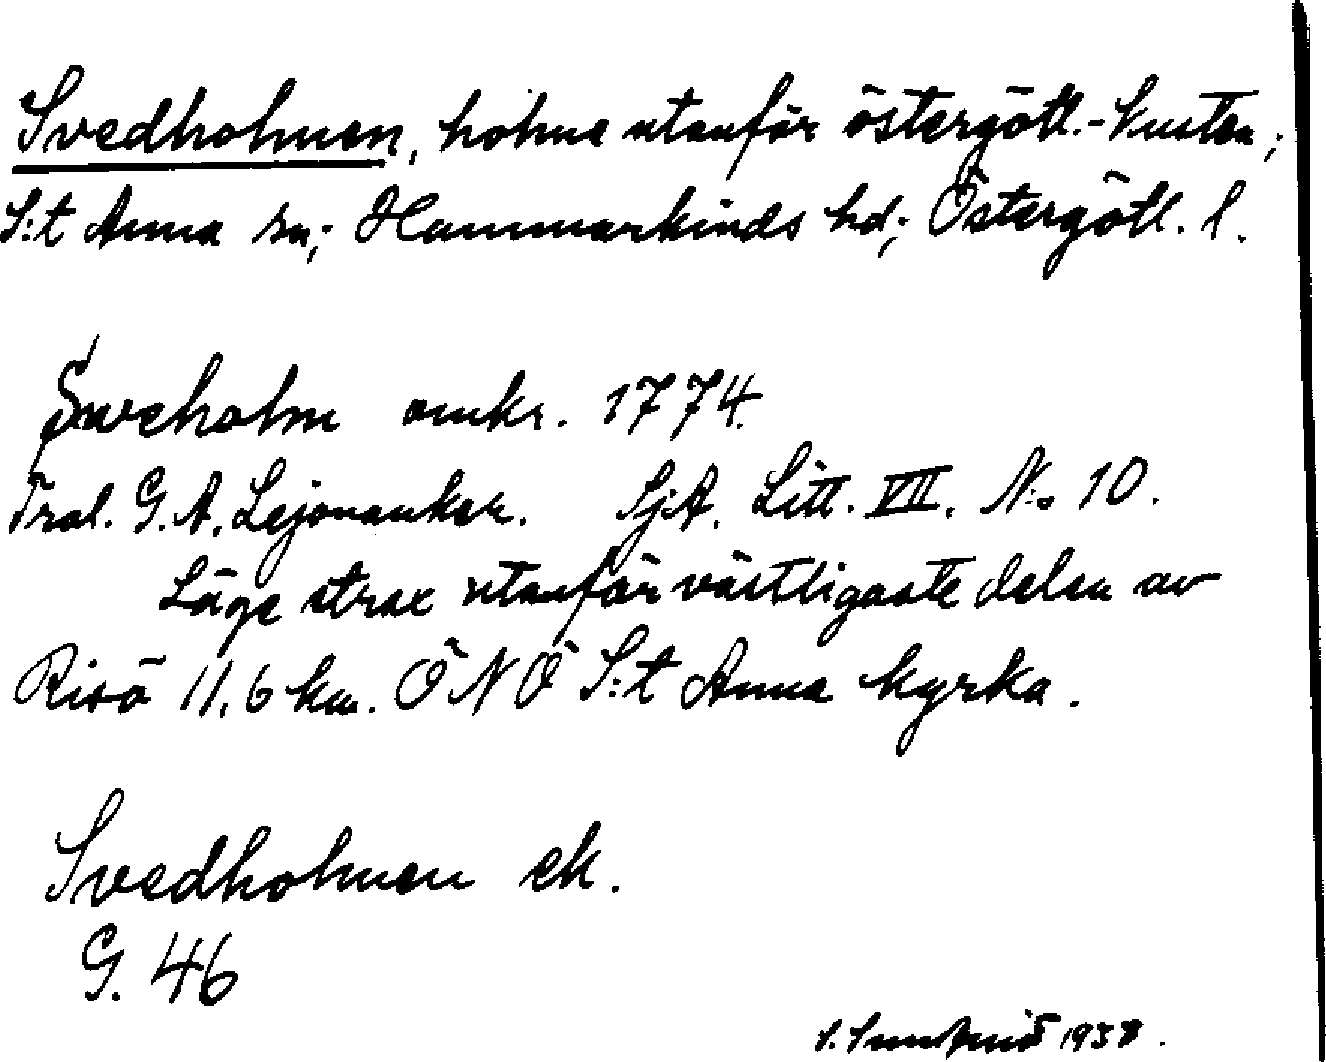 Svedholmen, holme utanför östergötl.-kusten;
S:t Anna sn; Hammarkinds hd; Östergötl. l.
Sweholm omkr. 1774.
Tral. G. A. Lejonanker. SjA. Litt. VII. No 10.
Läge strax utanför västligaste delen av
Risö 11,6 km. ÖNÖ S:t Anna kyrka.
Svedholmen ek.
G. 46
1938.